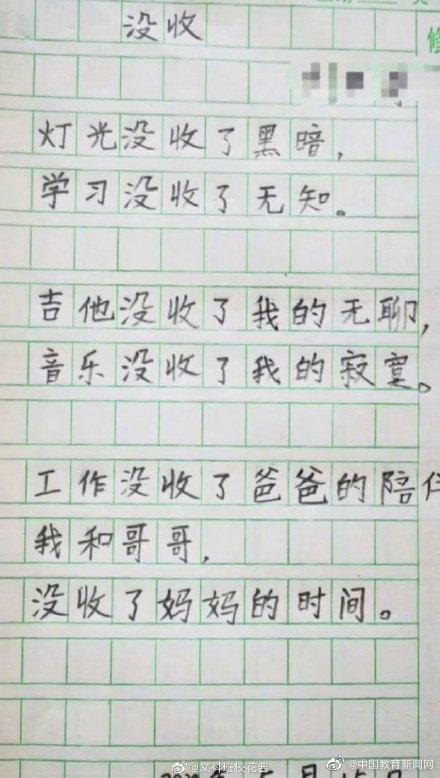 没收
灯光没收了黑暗，
学习没收了无知。
吉他没收了我的无聊，
音乐没收了我的寂寞。
工作没收了爸爸的陪伴
我和哥哥，
没收了妈妈的时间。
@文科班校花酱
@中国教育新闻网